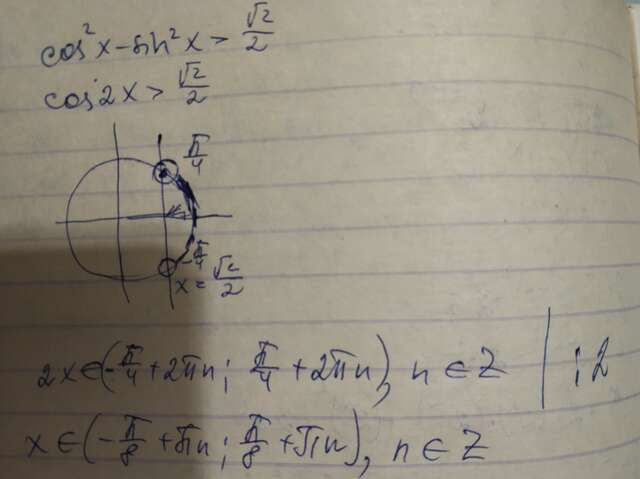 cos²x-sin²x>√2/2
cos2x>√2/2
π/4
-π/4
x=√2/2
2x∈(-π/4+2πn; π/4+2πn), n∈Z | :2
x∈(-π/8+πn; π/8+πn), n∈Z